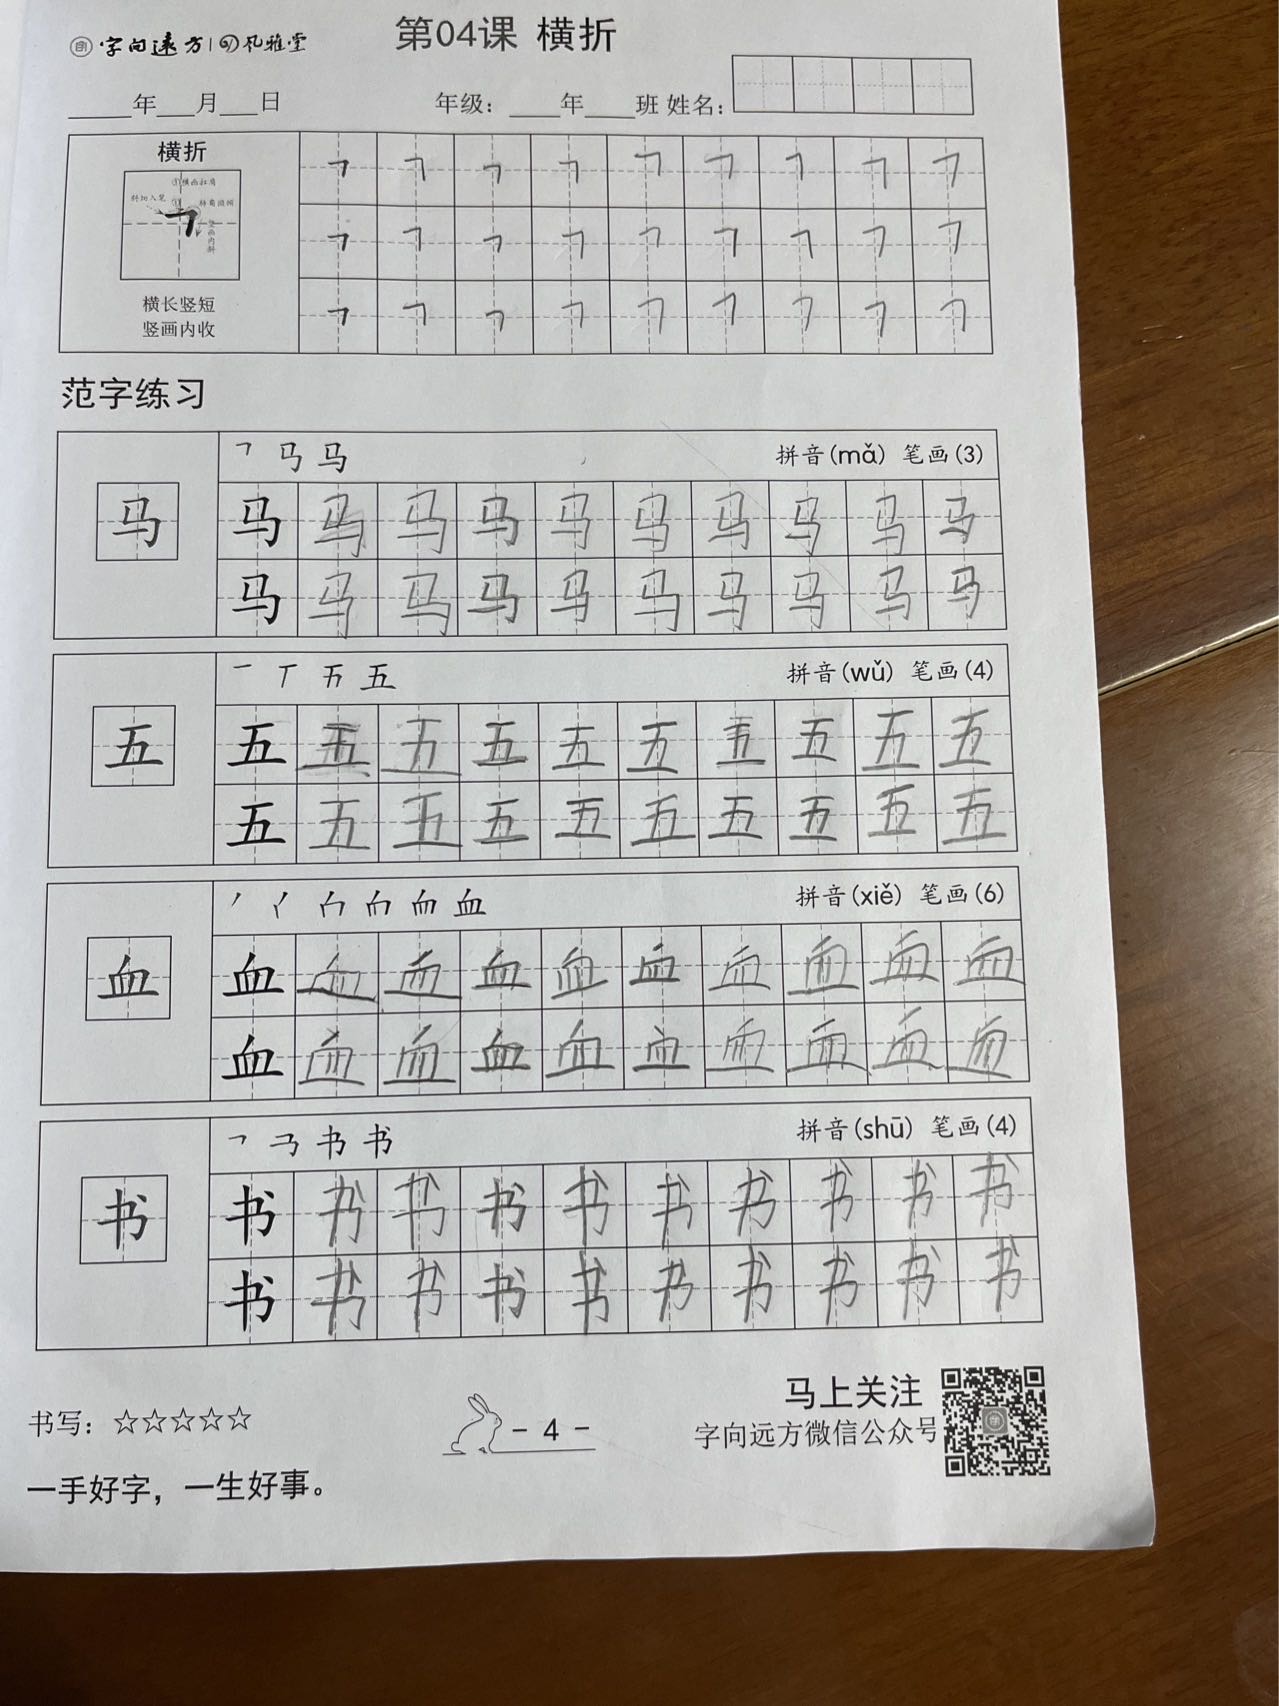 字向远方 | 孔雅堂
第04课 横折
____年___月___日 年级：___年___班 姓名：
横折
①横画扛肩
斜切入笔
转角顿顿
竖画内斜
横长竖短
竖画内收
㇕ ㇕ ㇕ ㇕ ㇕ ㇕ ㇕ ㇕ ㇕
㇕ ㇕ ㇕ ㇕ ㇕ ㇕ ㇕ ㇕ ㇕
㇕ ㇕ ㇕ ㇕ ㇕ ㇕ ㇕ ㇕ ㇕
范字练习
马 拼音(mǎ) 笔画(3)
马
马 马 马 马 马 马 马 马 马 马
马 马 马 马 马 马 马 马 马 马
五 拼音(wǔ) 笔画(4)
五
五 五 五 五 五 五 五 五 五 五
五 五 五 五 五 五 五 五 五 五
血 拼音(xiě) 笔画(6)
血
血 血 血 血 血 血 血 血 血 血
血 血 血 血 血 血 血 血 血 血
书 拼音(shū) 笔画(4)
书
书 书 书 书 书 书 书 书 书 书
书 书 书 书 书 书 书 书 书 书
书写：☆☆☆☆☆
- 4 -
马上关注
字向远方微信公众号
一手好字，一生好事。